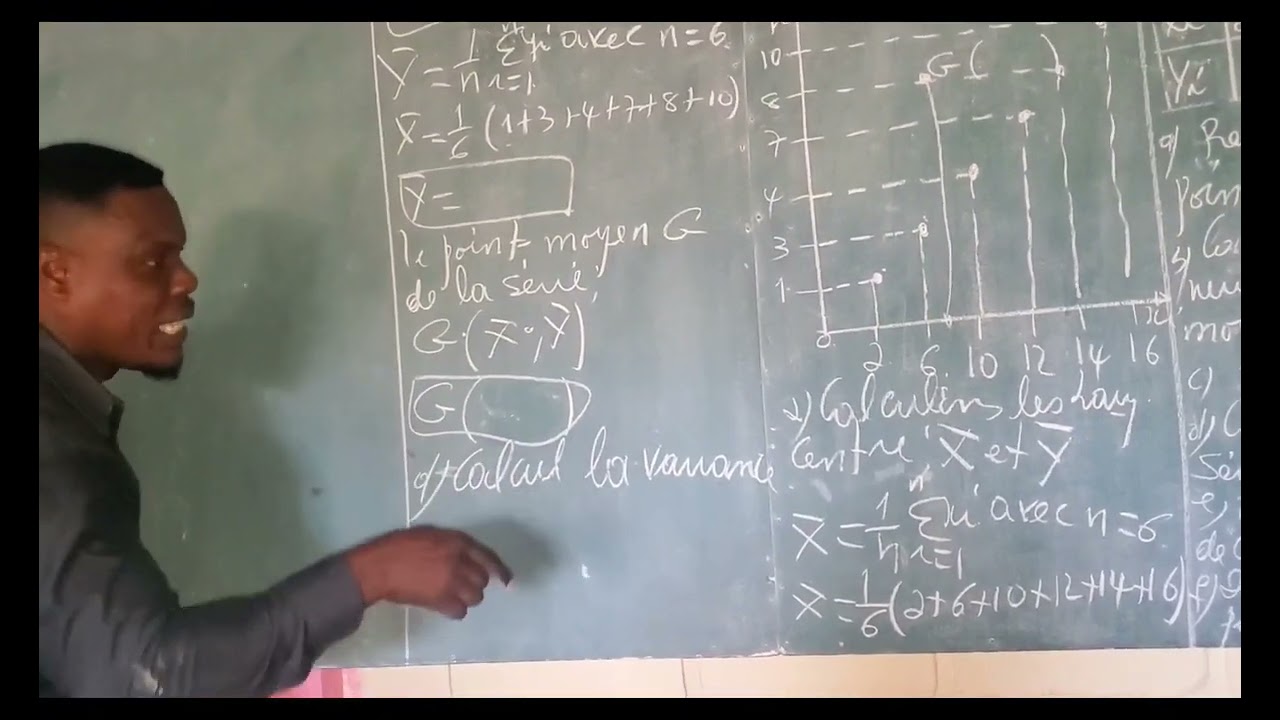 Ȳ = 1/n Σ yi avec n = 6
n
i=1
X̄ = 1/6 (1+3+4+7+8+10)
Ȳ =
le point moyen G
de la série,
G (X̄ ; Ȳ)
G (
d) Calcul la variance
10
8
7
4
3
1
G (
0
2 6 10 12 14 16
x
Calculons les
entre X̄ et Ȳ
X̄ = 1/n Σ xi avec n = 6
n
i=1
X̄ = 1/6 (2+6+10+12+14+16)
Yi
a) Re
poin
mo
c)
d) C
Sé
e)
de